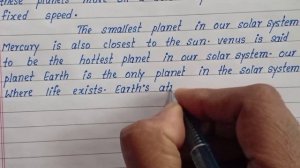 these planets move on a
fixed speed.
The smallest planet in our solar system
Mercury is also closest to the sun. venus is said
to be the hottest planet in our solar system. our
planet Earth is the only planet in the solar system
Where life exists. Earth's at